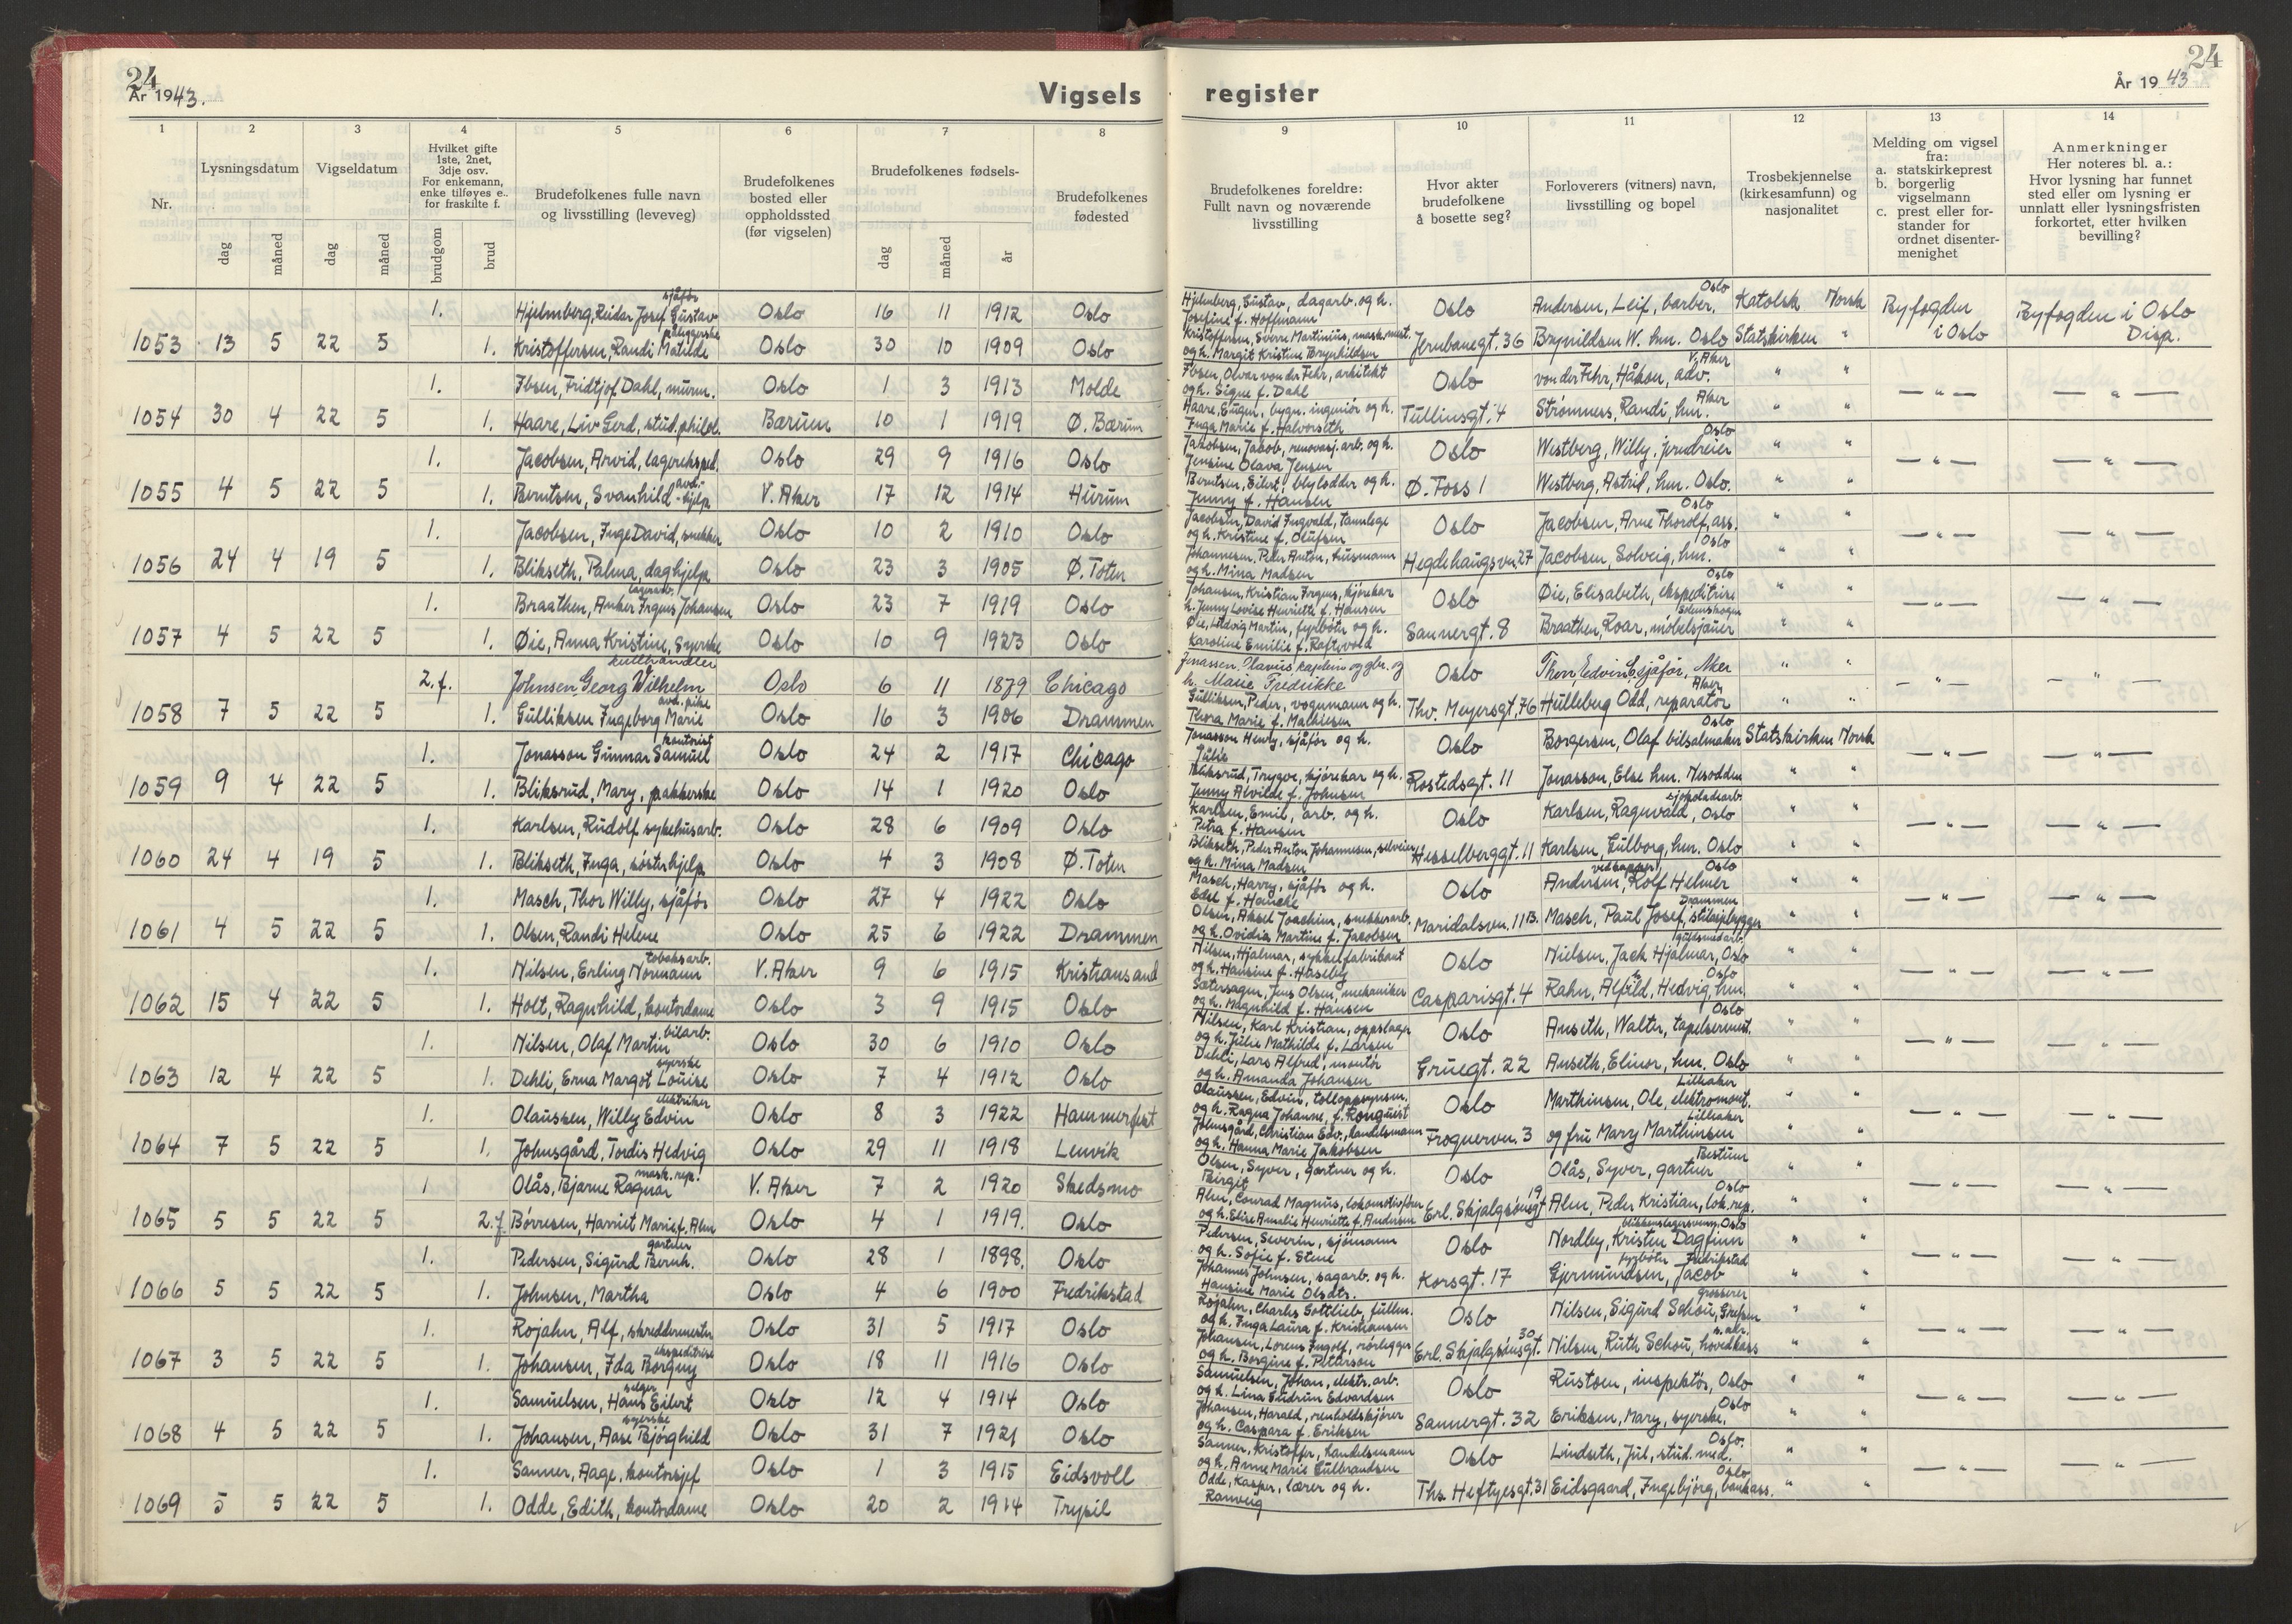 24
År 1943.
Vigsels
register
24
År 1943
1 2 3 4 5 6 7 8 9 10 11 12 13 14
Nr.
Lysningsdatum
dag måned
Vigseldatum
dag måned
Hvilket gifte
1ste, 2net,
3dje osv.
For enkemann,
enke tilføyes e.,
for fraskilte f.
brudgom brud
Brudefolkenes fulle navn
og livsstilling (leveveg)
Brudefolkenes
bosted eller
oppholdssted
(før vigselen)
Brudefolkenes fødsels-
dag måned år
Brudefolkenes
fødested
Brudefolkenes foreldre:
Fullt navn og noværende
livsstilling
Hvor akter
brudefolkene
å bosette seg?
Forloverers (vitners) navn,
livsstilling og bopel
Trosbekjennelse
(kirkesamfunn) og
nasjonalitet
Melding om vigsel
fra:
a. statskirkeprest
b. borgerlig
vigselmann
c. prest eller for-
stander for
ordnet disenter-
menighet
Anmerkninger
Her noteres bl. a.:
Hvor lysning har funnet
sted eller om lysning er
unnlatt eller lysningsfristen
forkortet, etter hvilken
bevilling?
1. Hjelmberg, Reidar Josef Gustav sjåfør Oslo 16 11 1912 Oslo Hjelmberg, Gustav, dagarb. og h. Josefine f. Hoffmann Oslo Andersen, Leif, barber, Oslo Katolsk Norsk Byfogden i Oslo Byfogden i Oslo Disp.
1053 13 5 22 5 1. Kristoffersen, Randi Matilde påleggerske Oslo 30 10 1909 Oslo Kristoffersen, Sverre Martinius, mask.mest. og h. Margit Kristine Brynhildsen Jernbanegt. 36 Brynildsen W. hm. Oslo Statskirken "
1. Ibsen, Fridtjof Dahl, murm. Oslo 1 3 1913 Molde Ibsen, Olvar von der Fehr, arkitekt og h. Signe f. Dahl Oslo von der Fehr, Håkon, adv. V. Aker " " — " — — " —
1054 30 4 22 5 1. Haare, Liv Gerd, stud. philol. Bærum 10 1 1919 Ø. Bærum Haare, Eugen, bygn. ingeniør og h. Inga Marie f. Halvorseth Tullinsgt. 4 Strømnes, Randi, hm. Aker " "
1. Jacobsen, Arvid, lagereksped. Oslo 29 9 1916 Oslo Jakobsen, Jakob, renovasj. arb. og h. Jensine Olava Jensen Oslo Westberg, Willy, jerndreier Oslo " " — " — — " —
1055 4 5 22 5 1. Berntsen, Svanhild avd.-hjelp V. Aker 17 12 1914 Hurum Berntsen, Eilert, blylodder og h. Jenny f. Hansen Ø. Foss 1 Westberg, Astrid, hm. Oslo. " "
1. Jacobsen, Inge David, snekker Oslo 10 2 1910 Oslo Jacobsen, David Ingvald, tannlege og h. Kristine f. Olufsen Oslo Jacobsen, Arne Thorolf, ass. Oslo " " — " — — " —
1056 24 4 19 5 1. Blikseth, Palma, daghjelp Oslo 23 3 1905 Ø. Toten Johannesen, Peder Anton, husmann og h. Mina Madsen Hegdehaugsvn. 27 Jacobsen, Solveig, hm. Oslo " "
1. Braathen, Anker Irgens Johansen lagerarb. Oslo 23 7 1919 Oslo Johansen, Kristian Irgens, kjørekar h. Jenny Lovise Henriette f. Hansen Oslo Øie, Elisabeth, ekspeditrise Oslo " " — " — — " —
1057 4 5 22 5 1. Øie, Anna Kristine, Syerske Oslo 10 9 1923 Oslo Øie, Ludvig Martin, fyrbøter og h. Karoline Emilie f. Raftevold Sannergt. 8 Braathen, Roar, møbelsjauer " "
2. f. Johnsen Georg Wilhelm kullhandler Oslo 6 11 1879 Chicago Jonassen, Olavus kaptein og h. Marie Fredrikke Oslo Thon, Edvin E, sjåfør, Aker " " — " — — " —
1058 7 5 22 5 1. Gulliksen Ingeborg Marie avd. pike Oslo 16 3 1906 Drammen Gulliksen, Peder, vognmann og h. Thora Marie f. Mathiesen Thv. Meyersgt. 76 Hulleberg Odd, reparatør Aker " "
1. Jonasson Gunnar Samuel kontorist Oslo 24 2 1917 Chicago Jonasson Henry, sjåfør og h. Julie Oslo Borgersen, Olaf bilsalmaker Oslo Statskirken Norsk — " — — " —
1059 9 4 22 5 1. Bliksrud, Mary, pakkerske Oslo 14 1 1920 Oslo Bliksrud, Trygve, kjørekar og h. Jenny Alvilde f. Johnsen Rostedsgt. 11 Jonasson, Else hm. Nesodden " "
1. Karlsen, Rudolf sykehusarb. Oslo 28 6 1909 Oslo Karlsen, Emil, arb. og h. Petra f. Hansen Oslo Karlsen, Ragnvald, sjokoladearb. Oslo " " — " — — " —
1060 24 4 19 5 1. Blikseth, Inga, søsterhjelp Oslo 4 3 1908 Ø. Toten Blikseth, Peder Anton Johannesen, selveier og h. Mina Madsen Hesselberggt. 11 Karlsen, Gulborg, hm. Oslo " "
1. Masch, Thor Willy, sjåfør Oslo 27 4 1922 Oslo Masch, Harry, sjåfør og h. Edel f. Hanche Oslo Andersen, Rolf Helmer vedkapper Oslo " " — " — — " —
1061 4 5 22 5 1. Olsen, Randi Helene Oslo 25 6 1922 Drammen Olsen, Aksel Joachim, snekkerarb. og h. Ovidia Martine f. Jacobsen Maridalsvn. 11B. Masch, Paul Josef, stilasjebygger Drammen " "
1. Nilsen, Erling Normann tobaksarb. V. Aker 9 6 1915 Kristiansand Nilsen, Hjalmar, sykkelfabrikant og h. Hansine f. Haseby Oslo Nielsen, Jack Hjalmar, gullsmedarb. Oslo " " — " — — " —
1062 15 4 22 5 1. Holt, Ragnhild, kontordame Oslo 3 9 1915 Oslo Sætersagen, Jens Olsen, mekaniker og h. Magnhild f. Hansen Casparisgt. 4 Rahn, Alfild, Hedvig, hm. Oslo " "
1. Nilsen, Olaf Martin bilarb. Oslo 30 6 1910 Oslo Nilsen, Karl Kristian, oppslager og h. Julie Mathilde f. Larsen Oslo Anseth, Walter, tapetsermest. Oslo " " — " — — " —
1063 12 4 22 5 1. Dehli, Erna Margot Louise syerske Oslo 7 4 1912 Oslo Dehli, Lars Alfred, montør og h. Amanda Johansen Gruegt. 22 Anseth, Elinor, hm. Oslo " "
1. Olaussen, Willy Edvin elektriker Oslo 8 3 1922 Hammerfest Olaussen, Edvin, tolloppsynsm. og h. Ragna Johanne, f. Ronquist Oslo Marthinsen, Ole, elektromont. Lilleaker " " — " — — " —
1064 7 5 22 5 1. Johnsgård, Tordis Hedvig Oslo 29 11 1918 Lenvik Johnsgård, Christian Edv., handelsmann og h. Hanna Marie Jakobsen Frognervn. 3 og fru Mary Marthinsen Lilleaker " "
1 Olås, Bjarne Ragnar mask. rep. V. Aker 7 2 1920 Skedsmo Olsen, Syver, gartner og h. Birgit Oslo Olås, Syver, gartner Bestum " " — " — — " —
1065 5 5 22 5 2. f. Børresen, Harriet Marie, f. Alm Oslo 4 1 1919. Oslo Alm, Conrad Magnus, lokomotivfører og h. Elise Amalie Henriette f. Andersen Erl. Skjalgsønsgt 19 Alm, Peder Kristian, lok. rep. Oslo " "
1. Pedersen, Sigurd Bernh. gartner Oslo 28 1 1898. Oslo Pedersen, Severin, sjømann og h. Sofie f. Stene Oslo Nordley, Kristen Dagfinn blikkenslagersvenn, Oslo " " — " — — " —
1066 5 5 22 5 1. Johnsen, Martha Oslo 4 6 1900 Fredrikstad Johannes Johnsen, sagarb. og h. Hansine Marie Olsdtr. Korsgt. 17 Gjermundsen, Jacob fyrbøter Fredrikstad " "
1. Rojahn, Alf, skreddermester Oslo 31 5 1917 Oslo Rojahn, Charles Gottlieb, fullm. og h. Inga Laura f. Kristiansen Oslo Nilsen, Sigurd Schou, grosserer Grefsen " " — " — — " —
1067 3 5 22 5 1. Johansen, Ida Borgny ekspeditrise Oslo 18 11 1916 Oslo Johansen, Lorens Ingolf, rørlegger og h. Borgine f. Peterson Erl. Skjalgsønsgt. 30 Nilsen, Ruth Schou, hovedkass " "
1. Samuelsen, Hans Eilert selger Oslo 12 4 1914 Oslo Samuelsen, Johan, elektr. arb. og h. Lina Gudrun Edvardsen Oslo Rustoen, inspektør, Oslo " " — " — — " —
1068 4 5 22 5 1. Johansen, Aase Bjørghild syerske Oslo 31 7 1921 Oslo Johansen, Harald, renholdskjører og h. Caspara f. Eriksen Sannergt. 32 Eriksen, Mary, syerske, Oslo " "
1. Sanner, Aage, kontorsjef Oslo 1 3 1915 Eidsvoll Sanner, Kristoffer, handelsmann og h. Anne Marie Gulbrandsen Oslo Lindseth, Jul, stud. med. Oslo. " " — " — — " —
1069 5 5 22 5 1. Odde, Edith, kontordame Oslo 20 2 1914 Trysil Odde, Kasper, lærer og h. Ranveig Ths. Heftyesgt. 31 Eidsgaard, Ingebjørg, bankass. Oslo " "